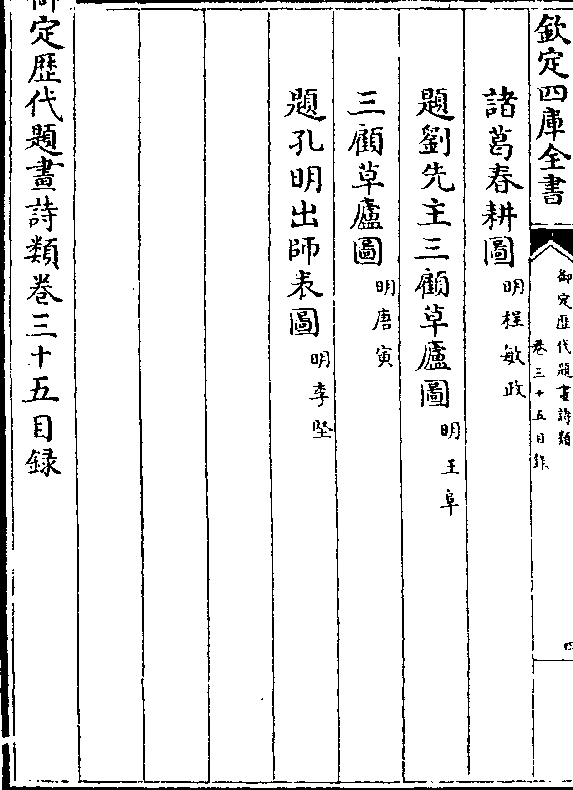 欽定四庫全書
御定歴代題畫詩類
卷三十五目錄
四
諸葛春耕圖 明程敏政
題劉先主三顧草廬圖 明王阜
三顧草廬圖 明唐寅
題孔明出師表圖 明李堅
御定歴代題畫詩類卷三十五目録